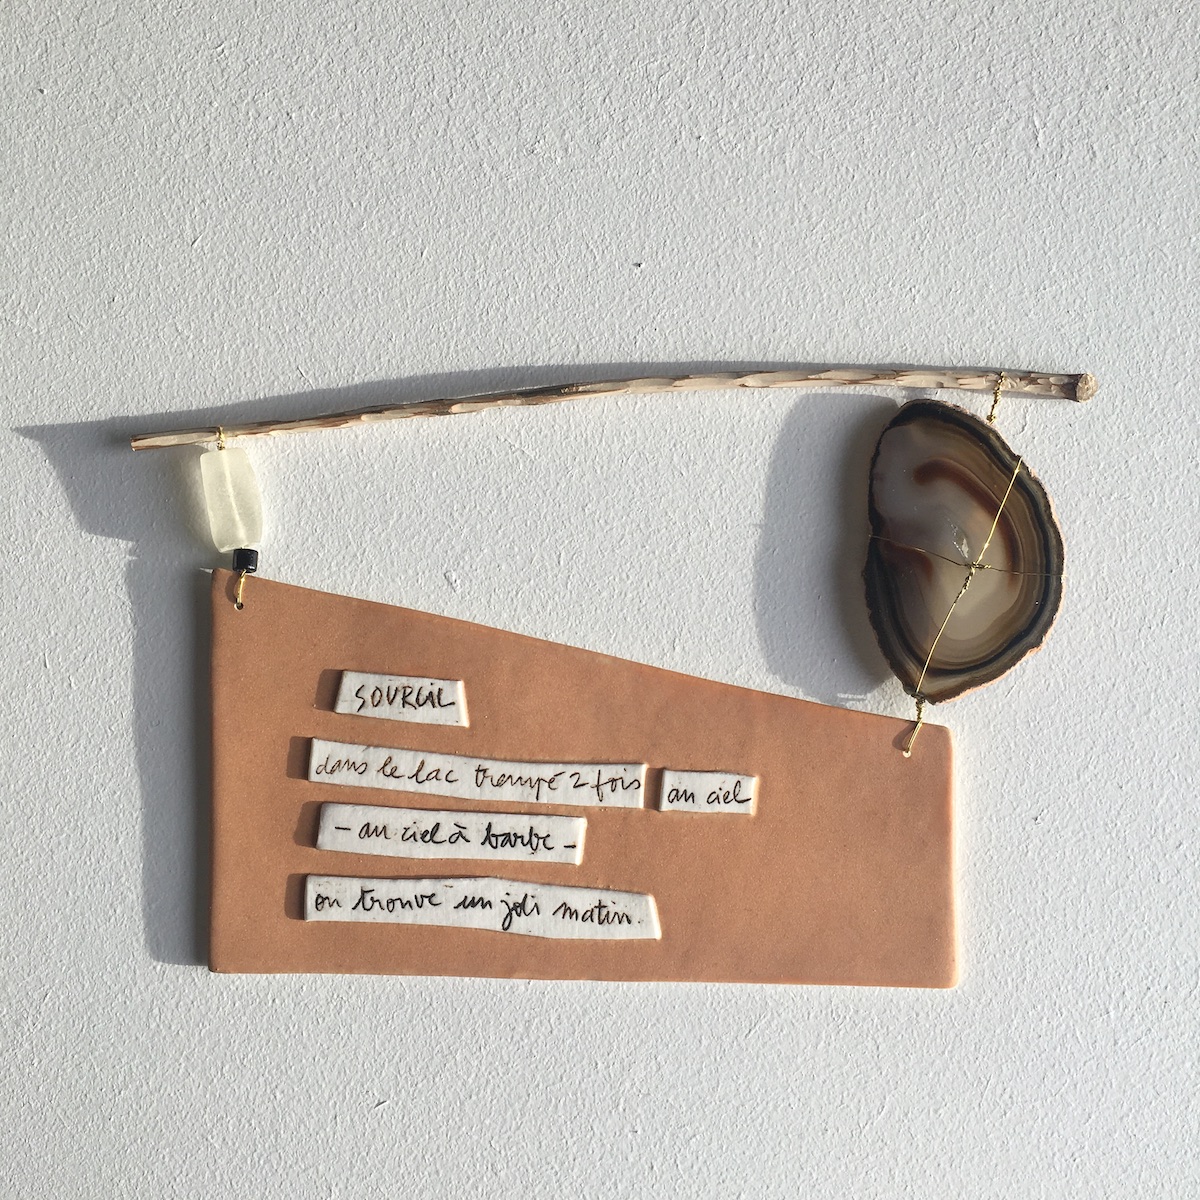 SOURCIL
dans le lac trempé 2 fois au ciel
– au ciel à barbe –
on trouve un joli matin.